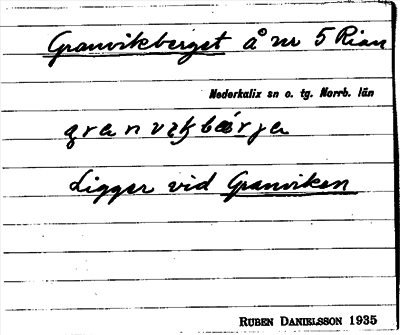 Granvikberget å nr 5 Rian
Nederkalix sn o. tg. Norrb. län
Ligger vid Granviken
RUBEN DANIELSSON 1935